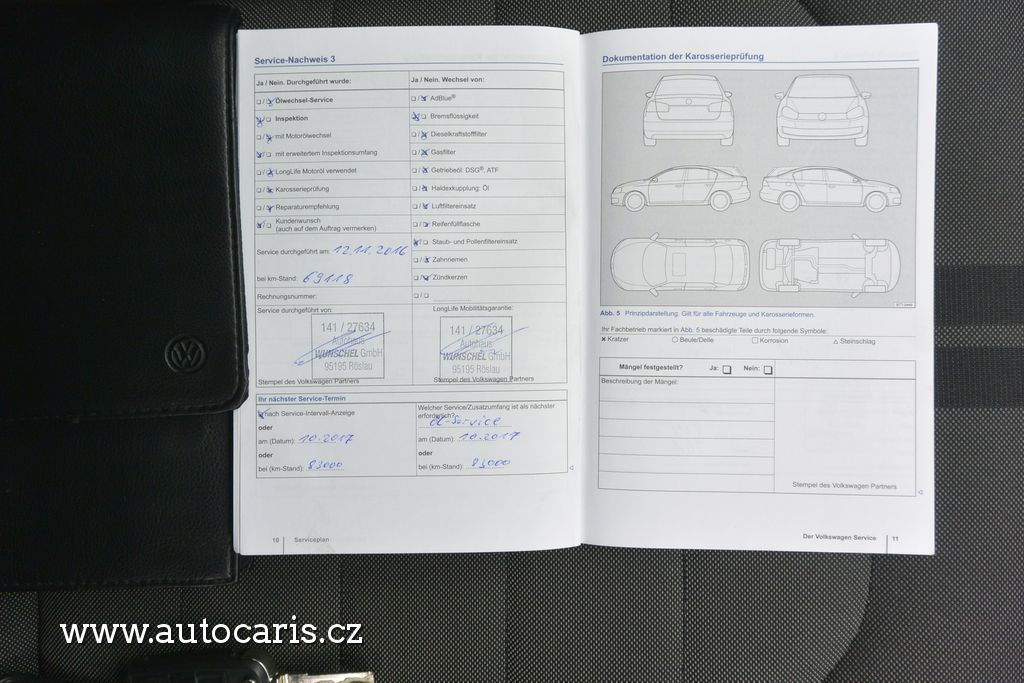 Service-Nachweis 3
Ja / Nein. Durchgeführt wurde:
Ölwechsel-Service
Inspektion
mit Motorölwechsel
mit erweitertem Inspektionsumfang
LongLife Motoröl verwendet
Karosserieprüfung
Reparaturempfehlung
Kundenwunsch
(auch auf dem Auftrag vermerken)
Service durchgeführt am: 12.11.2016
bei km-Stand: 69118
Rechnungsnummer:
Service durchgeführt von:
141 / 27634
Autohaus
WUNSCHEL GmbH
95195 Röslau
Stempel des Volkswagen Partners
Ja / Nein. Wechsel von:
AdBlue®
Bremsflüssigkeit
Dieselkraftstofffilter
Gasfilter
Getriebeöl: DSG®, ATF
Haldexkupplung: Öl
Luftfiltereinsatz
Reifenfüllflasche
Staub- und Pollenfiltereinsatz
Zahnriemen
Zündkerzen
LongLife Mobilitätsgarantie:
141 / 27634
Autohaus
WUNSCHEL GmbH
95195 Röslau
Stempel des Volkswagen Partners
Ihr nächster Service-Termin
nach Service-Intervall-Anzeige
oder
am (Datum): 10.2017
oder
bei (km-Stand): 83000
Welcher Service/Zusatzumfang ist als nächster
erforderlich?
Öl-Service
am (Datum): 10.2017
oder
bei (km-Stand): 83000
10 Serviceplan
Dokumentation der Karosserieprüfung
Abb. 5 Prinzipdarstellung. Gilt für alle Fahrzeuge und Karosserieformen.
Ihr Fachbetrieb markiert in Abb. 5 beschädigte Teile durch folgende Symbole:
Kratzer Beule/Delle Korrosion Steinschlag
Mängel festgestellt? Ja: Nein:
Beschreibung der Mängel:
Stempel des Volkswagen Partners
Der Volkswagen Service 11
www.autocaris.cz